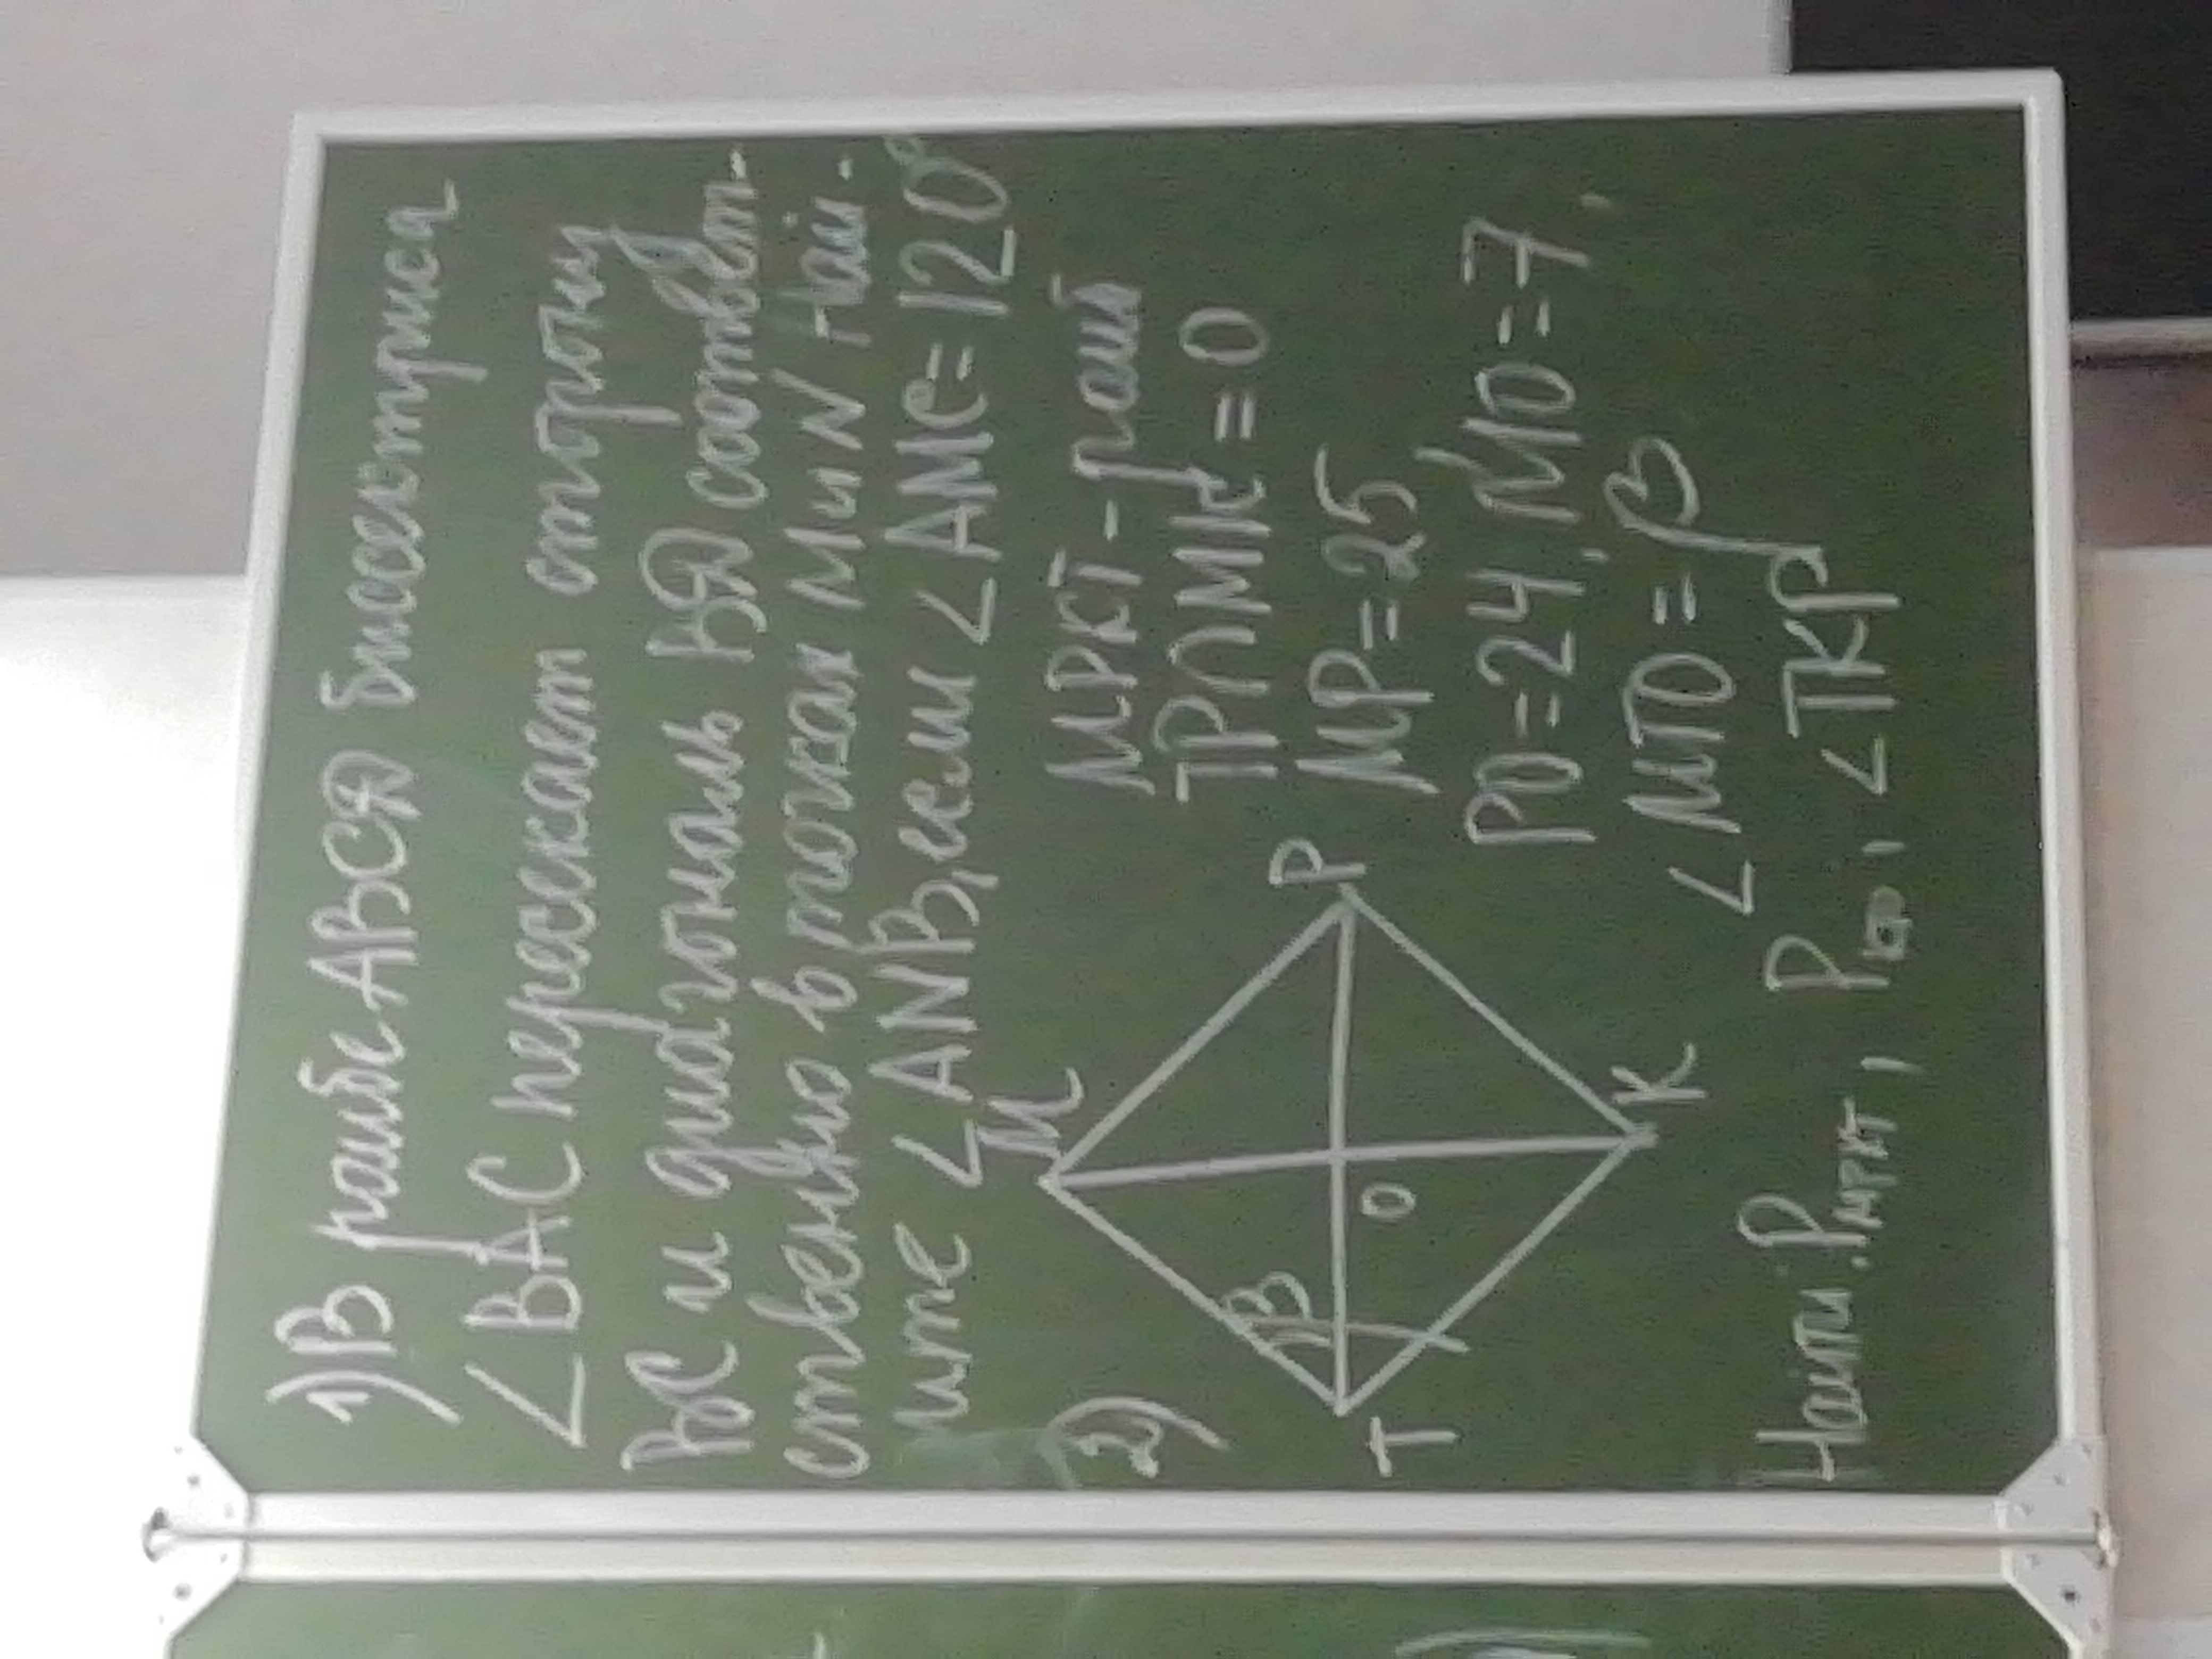 1) В ромбе ABCD биссектриса
∠BAC пересекает сторону
BC и диагональ BD соответ-
ственно в точках M и N. Най-
дите ∠ANB, если ∠AMC=120°
2)
M
P
K
T
O
β
MPKT - ромб
TP∩MK=O
MP=25
PO=24, MO=7,
∠MTO=β
Найти: P MPKT, P, ∠TKP